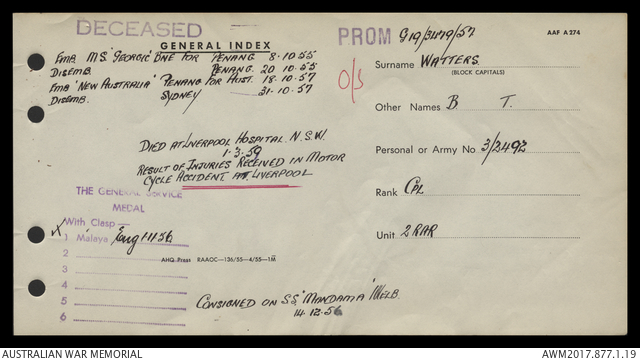 DECEASED
GENERAL INDEX
Emb M.S. "Georgic" BNE FOR PENANG 8.10.55
Disemb. PENANG. 20.10.55
Emb "New Australia" PENANG FOR AUST. 18.10.57
Disemb. SYDNEY 31.10.57
DIED AT LIVERPOOL HOSPITAL. N.S.W.
1.3.59
RESULT OF INJURIES RECEIVED IN MOTOR
CYCLE ACCIDENT AT LIVERPOOL
THE GENERAL SERVICE
MEDAL
With Clasp —
X 1 Malaya Eng 11156
2
3
4
5
6
AHQ Press RAAOC—136/55—4/55—1M
CONSIGNED ON S.S. "MANDAMA" MELB.
14.12.56
PROM G19/3479/57
AAF A 274
O/S
Surname WATTERS
(BLOCK CAPITALS)
Other Names B T.
Personal or Army No 3/2492
Rank CPL
Unit 2 RAR
AUSTRALIAN WAR MEMORIAL
AWM2017.877.1.19